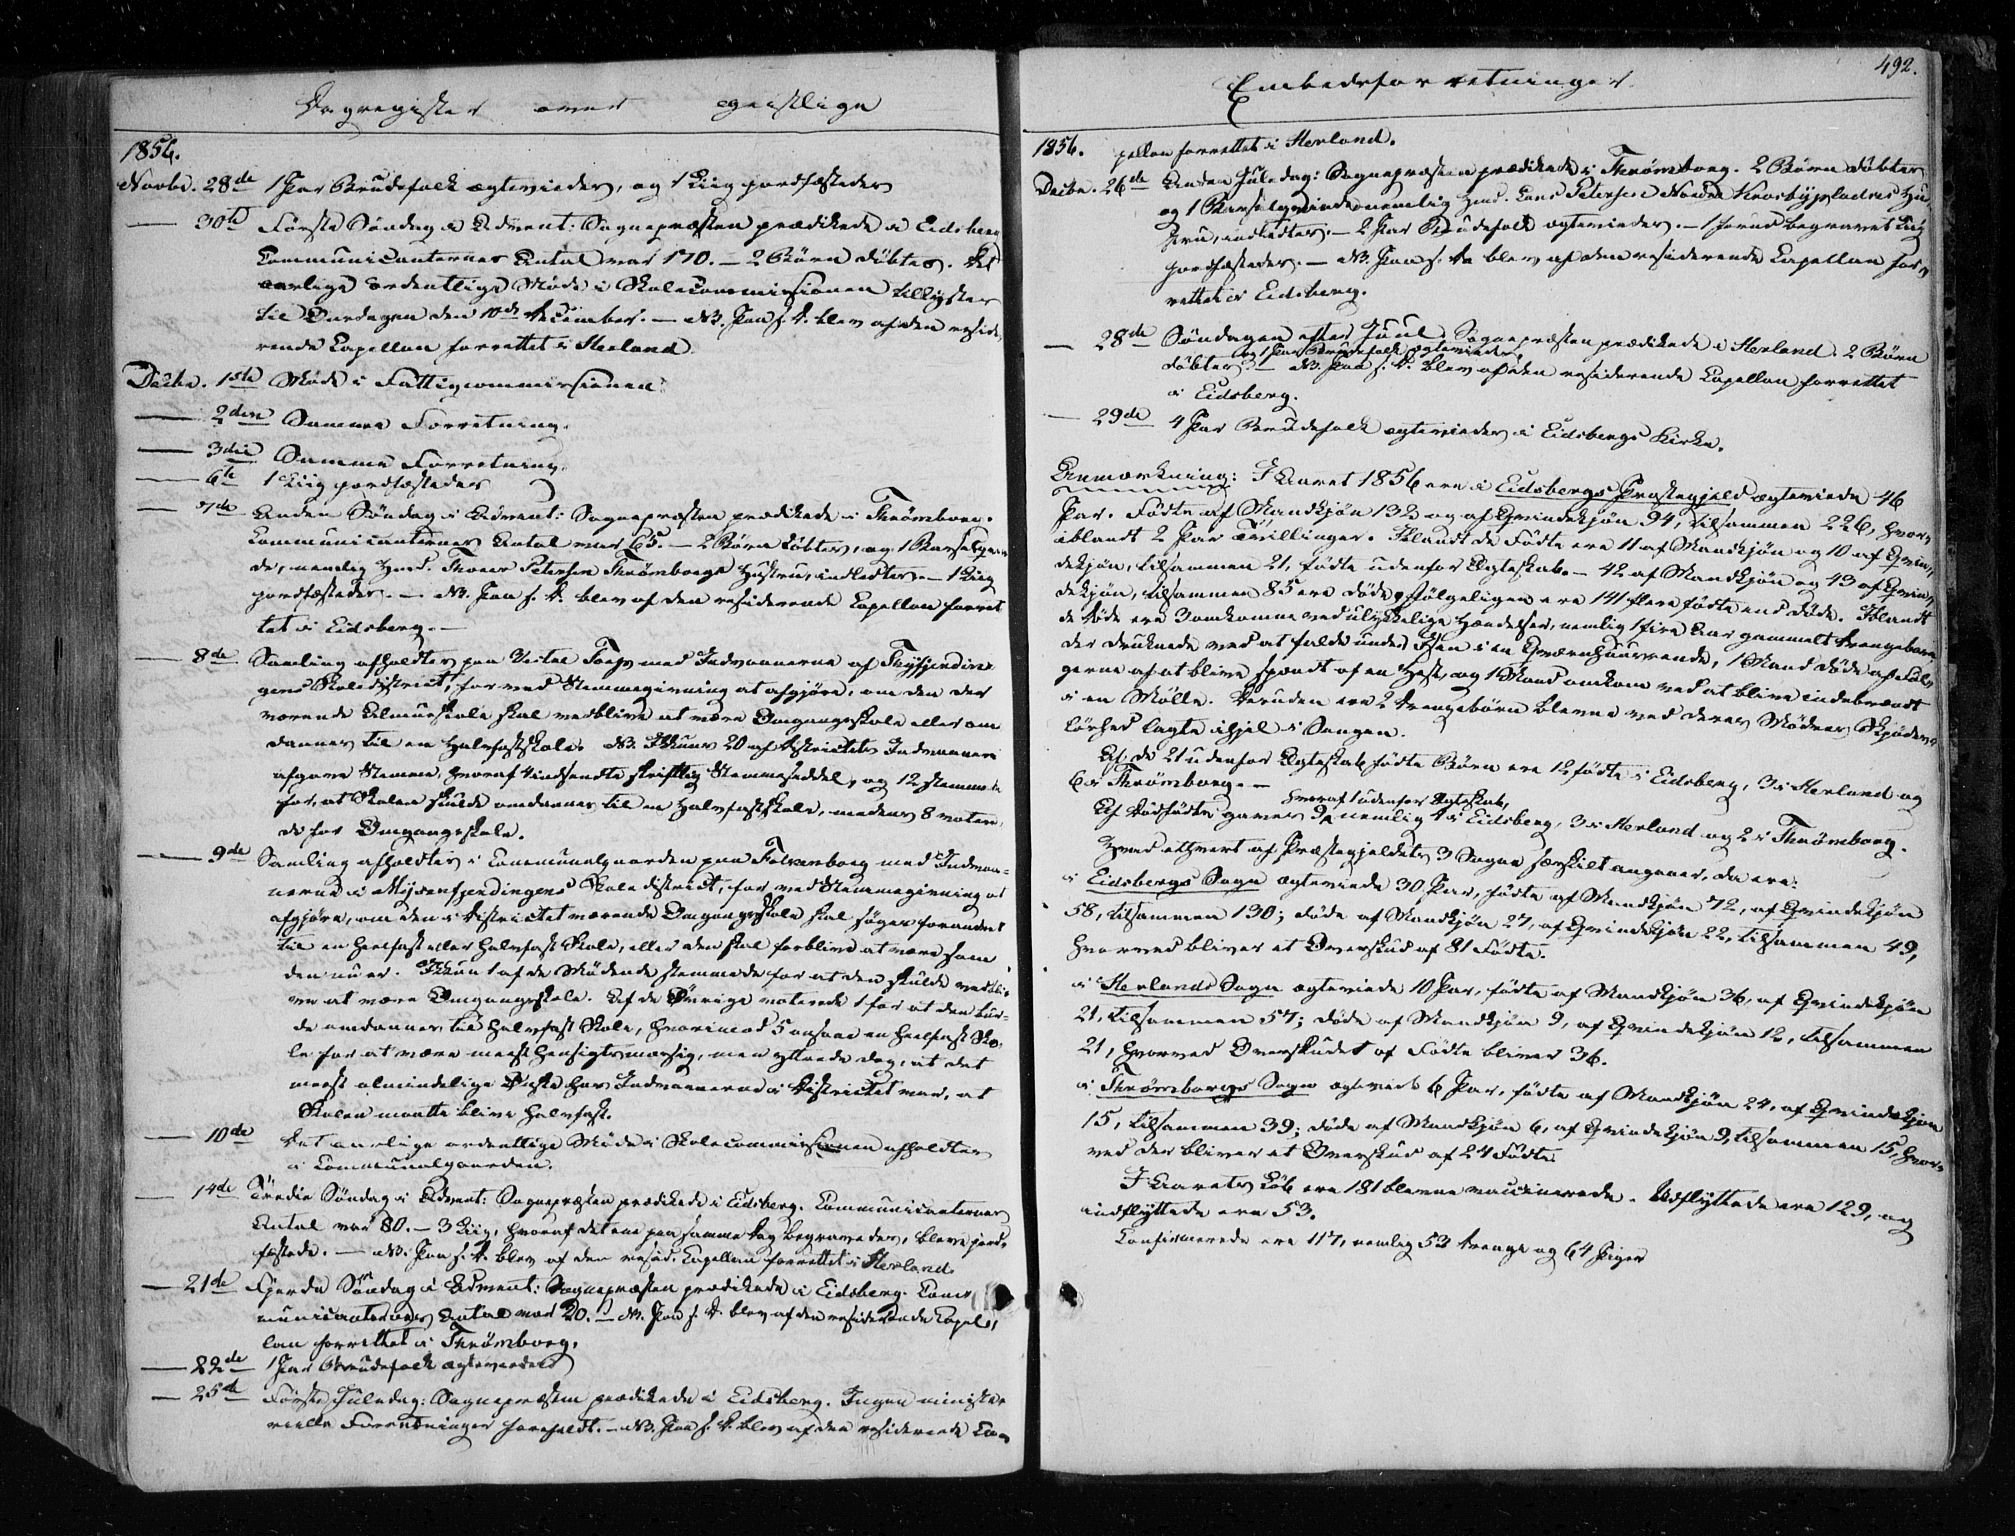 Dagregister over geistlige
1856.
Novbr. 28de 1 Par Brudefolk ægteviedes, og 1 Liig jordfæstedes
— 30te Første Søndag i Advent: Sognepræsten prædikede i Eidsberg
Communicanternes Antal var 170. — 2 Børn døbtes. Det
aarlige ordentlige Møde i Skolecommissionen tillystes
til Onsdagen den 10de December. — NB. Paa s. D. blev af den reside,
rende Capellan forrettet i Herland.
Decbr. 1ste Møde i Fattigcommissionen.
— 2den Samme Forretning.
— 3die Samme Forretning.
— 6te 1 Liig jordfæstedes
— 7de Anden Søndag i Advent: Sognepræsten prædikede i Thrømborg.
Communicanternes Antal var 65. — 2 Børn døbtes, og 1 Barselqvin
de, nemlig Hmd. Thorer Petersen Thrømborgs Hustru, indledtes. — 1 Liig
jordfæstedes. — NB. Paa s. D. blev af den residerende Capellan forret
tet i Eidsberg. —
— 8de Samling afholdtes paa Vestre Torp med Indvaanerne af
gens Skoledistrict, for ved Stemmegivning at afgjøre, om den der
værende Almueskole skal vedblive at være Omgangsskole eller om
dannes til en halvfastskole. NB. Ikkuns 20 af Districtets Indvaanere
afgave Stemme, hvoraf 4 indsendte skriftlig Stemmeseddel, og 12 stemmede
for, at Skolen skulde omdannes til en halvfastskole, medens 8 votere,
de for Omgangsskole.
— 9de Samling afholdtes i Communalgaarden paa Folkenborg med Indvaa=
nerne i Mysenfjerdingens Skoledistrict, for ved Stemmegivning at
afgjøre, om den i Districtet værende Omgangsskole skal søges forandret
til en heelfast eller halvfast Skole, eller den skal forblive at være som
den nu er. Ikkun 1 af de Mødende stemmede for at den skulde vedbli,
ve at være Omgangsskole. Af de Øvrige voterede 1 for at den bur=
de omdannes til halvfast Skole, hvorimod 5 ansaae en heelfast Sko,
le for at være meest hensigtsmæssig, men yttrede dog, at det
meest almindelige Ønske hos Indvaanerne i Districtet var, at
Skolen maatte blive halvfast.
— 10de Det aarlige ordentlige Møde i Skolecommissionen afholdtes
i Communalgaarden.
— 14de Tredie Søndag i Advent: Sognepræsten prædikede i Eidsberg. Communicanternes
Antal var 80. — 3 Liig, hvoraf det ene paa samme Dag begravedes, bleve jord,
fæstede. — NB. Paa s. D. blev af den resid. Capellan forrettet i Herland.
— 21de Fjerde Søndag i Advent: Sognepræsten prædikede i Eidsberg. Com,
municanternes Antal var 20. — NB. Paa s. D. blev af den residerende Capel,
lan forrettet i Thrømborg.
— 22de 1 Par Brudefolk ægteviedes
— 25de Første Juledag: Sognepræsten prædikede i Eidsberg. Ingen ministe
rielle Forretninger forefaldt. — NB. Paa s. D. blev af den residerende Ca,
Embedsforretninger.
492.
1856. pellan forrettet i Herland.
Decbr. 26de Anden Juledag: Sognepræsten prædikede i Thrømborg. 2 Børn døbtes
og 1 Barselqvinde, nemlig Hmd. Petersen Hu,
stru, indledtes. — 2 Par Brudefolk ægteviedes. — 1 forud begravet Liig
jordfæstedes. — NB. Paa s. D. blev af den residerende Capellan for,
rettet i Eidsberg.
— 28de Søndagen efter Juul. Sognepræsten prædikede i Herland. 2 Børn
og 1 Par Brudefolk ægteviedes,
døbtes — NB. Paa s. D. blev af den residerende Capellan forrettet
i Eidsberg.
— 29de 4 Par Brudefolk ægteviedes i Eidsbergs Kirke.
Anmærkning: I Aaret 1856 ere i Eidsbergs Præstegjeld ægteviede 46
Par. Fødte af Mandkjøn 132 og af Qvindekjøn 94, tilsammen 226, hvor,
iblandt 2 Par Tvillinger. Iblandt de Fødte ere 11 af Mandkjøn og 10 af Qvin,
dekjøn, tilsammen 21, fødte udenfor Ægteskab. — 42 af Mandkjøn og 43 af Qvin,
dekjøn, tilsammen 85 ere døde, følgeligen ere 141 flere fødte end døde. Iblandt
de døde ere 3 omkomne ved ulykkelige Hændelser, nemlig 1 fire Aar gammelt Drengebarn,
der druknede ved at falde under Isen i en Qværnhuusrende, 1 Mand døde af Føl,
gerne af at blive spændt af en Hest, og 1 Mand omkom ved at blive indebrændt
i en Mølle. Desuden ere 2 Drengebørn blevne ved deres Mødres Skjødes,
løshed lagte ihjel i Sengen.
Af de 21 udenfor Ægteskab fødte Børn ere 12 fødte i Eidsberg, 3 i Herland og
6 i Thrømborg. —
hvoraf 1 udenfor Ægteskab,
Af Dødfødte gaves 9, nemlig 4 i Eidsberg, 3 i Herland og 2 i Thrømborg.
Hvad ethvert af Præstegjeldets 3 Sogne særskilt angaaer, da ere:
i Eidsbergs Sogn ægteviede 30 Par, fødte af Mandkjøn 72, af Qvindekjøn
58, tilsammen 130; døde af Mandkjøn 27, af Qvindekjøn 22, tilsammen 49,
hvorved bliver et Overskud af 81 Fødte.
i Herlands Sogn ægteviede 10 Par, fødte af Mandkjøn 36, af Qvindekjøn
21, tilsammen 57; døde af Mandkjøn 9, af Qvindekjøn 12, tilsammen
21, hvorved Overskudet af Fødte bliver 36.
i Thrømborgs Sogn ægteviede 6 Par, fødte af Mandkjøn 24, af Qvindekjøn
15, tilsammen 39; døde af Mandkjøn 6, af Qvindekjøn 9, tilsammen 15, hvor,
ved der bliver et Overskud af 24 Fødte
I Aarets Løb ere 181 blevne vaccinerede. Udflyttede ere 129, og
indflyttede ere 53.
Confirmerede ere 117, nemlig 53 Drenge og 64 Piger